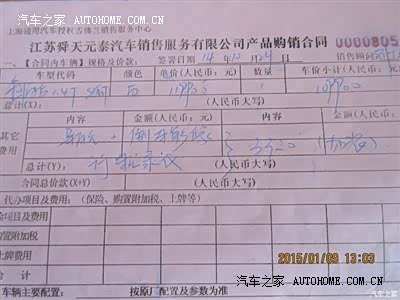 汽车之家 AUTOHOME.COM.CN
上海通用汽车授权雪佛兰销售服务中心
江苏舜天元泰汽车销售服务有限公司产品购销合同 0000805
一、【合同内车辆】规格及价款: 签署日期 14 年 12 月 24 日 销售顾问
车型代码 颜色 单价(人民币)元 数量 车价小计(人民币)元
1.4T 白 109900 1 109900
总计(X): (人民币大写)
其它费用 内容 金额(人民币)元 内容 金额(人民币)元
3320
总计(Y): 行车记录仪 (人民币大写)
合同总价款(X+Y) (人民币大写)
代办项目及费用: (保险、购置附加税、上牌等)
项目及费用
购置附加税
上牌费用
合计
2015/01/09 13:03
主要配置: 按原厂配置及参数为准
汽车之家 AUTOHOME.COM.CN